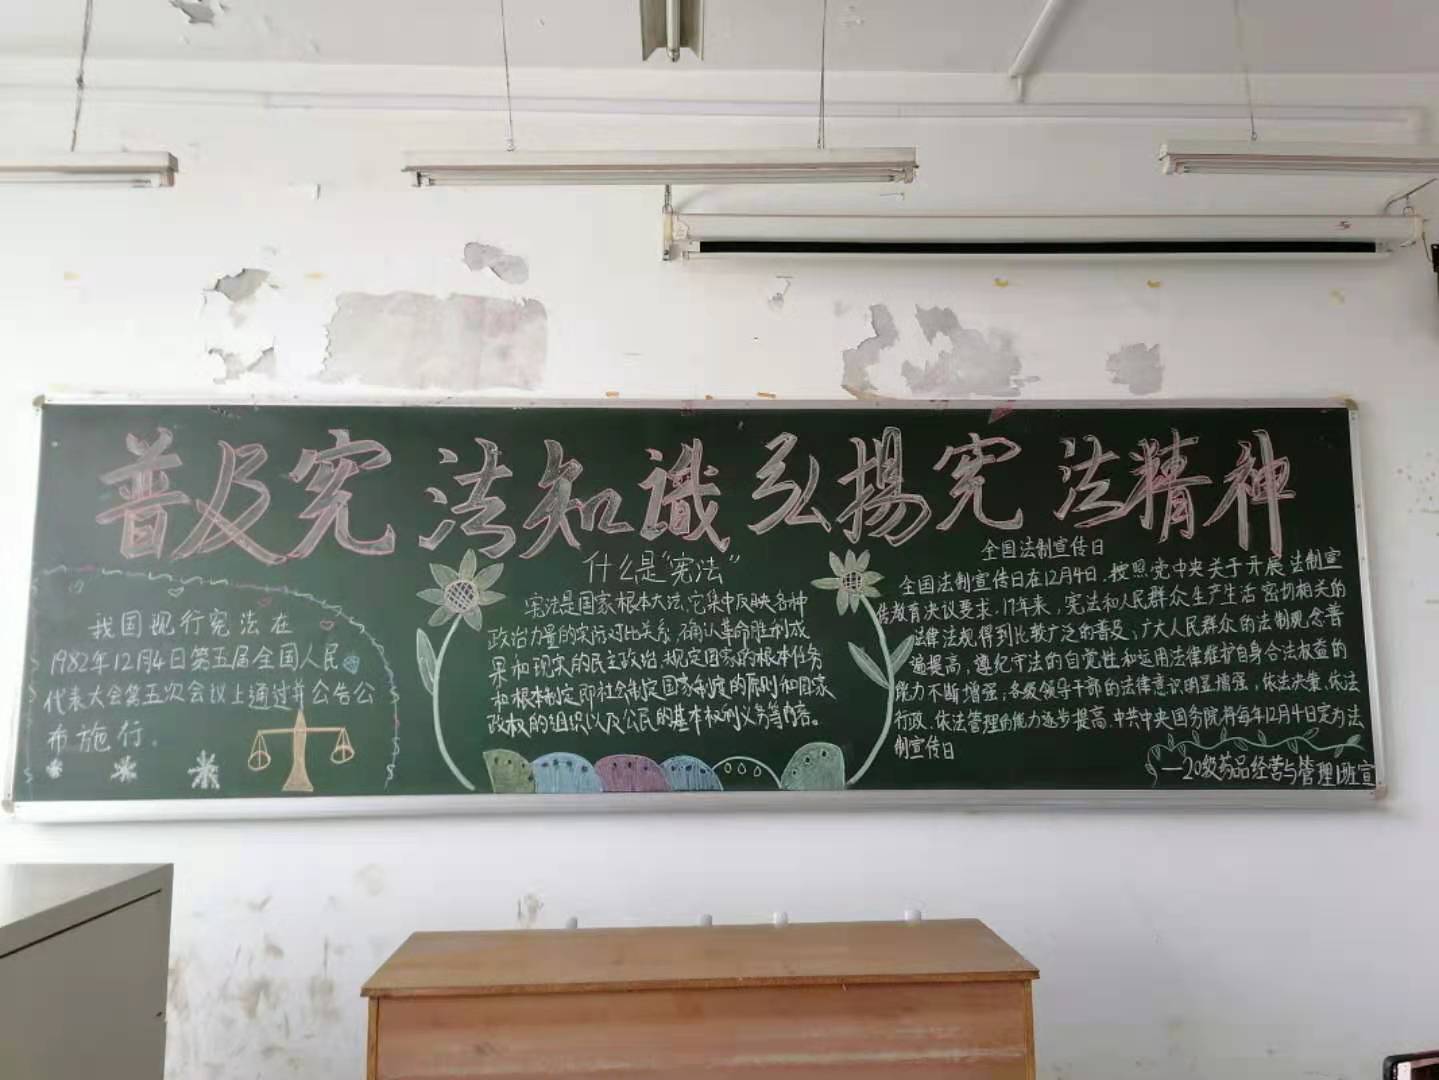 普及宪法知識弘揚宪法精神
我国现行宪法在
1982年12月4日第五届全国人民
代表大会第五次会议上通过并公告公
布施行。
什么是“宪法”
宪法是国家根本大法,它集中反映各种
政治力量的实际对比关系,确认革命胜利成
果和现实的民主政治,规定国家的根本任务
和根本制定,即社会制定国家制度的原则和国家
政权的组织以及公民的基本权利义务等内容。
全国法制宣传日
全国法制宣传日在12月4日.按照党中央关于开展法制宣
传教育决议要求.17年来,宪法和人民群众生产生活密切相关的
法律法规得到比较广泛的普及,广大人民群众的法制观念普
遍提高,遵纪守法的自觉性和运用法律维护自身合法权益的
能力不断增强,各级领导干部的法律意识明显增强,依法决策、依法
行政、依法管理的能力逐步提高,中共中央国务院将每年12月4日定为法
制宣传日
—20级药品经营与管理1班宣